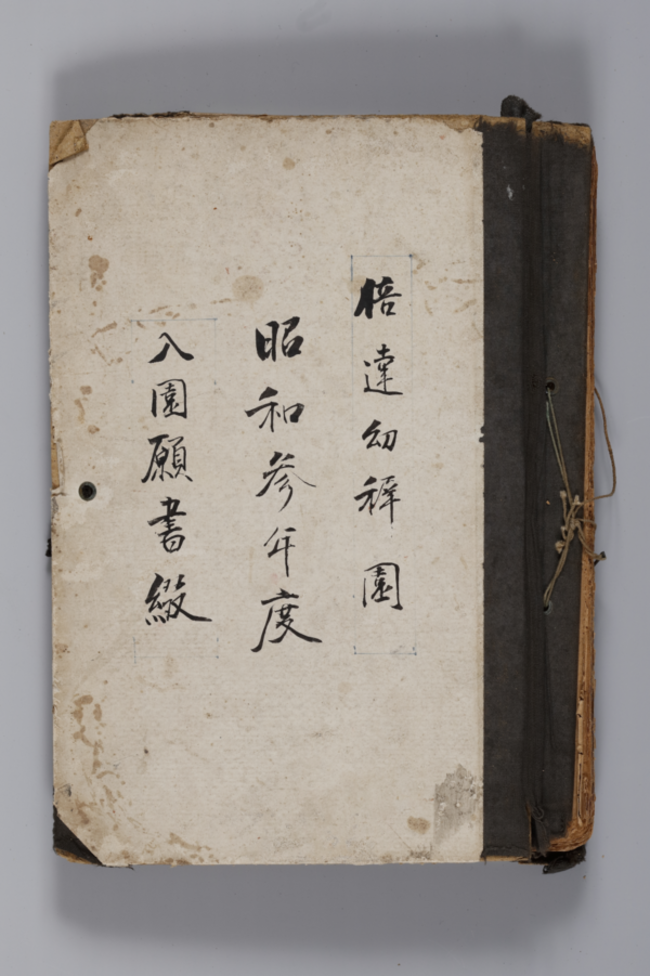 倍達幼穉園
昭和参年度
入園願書綴